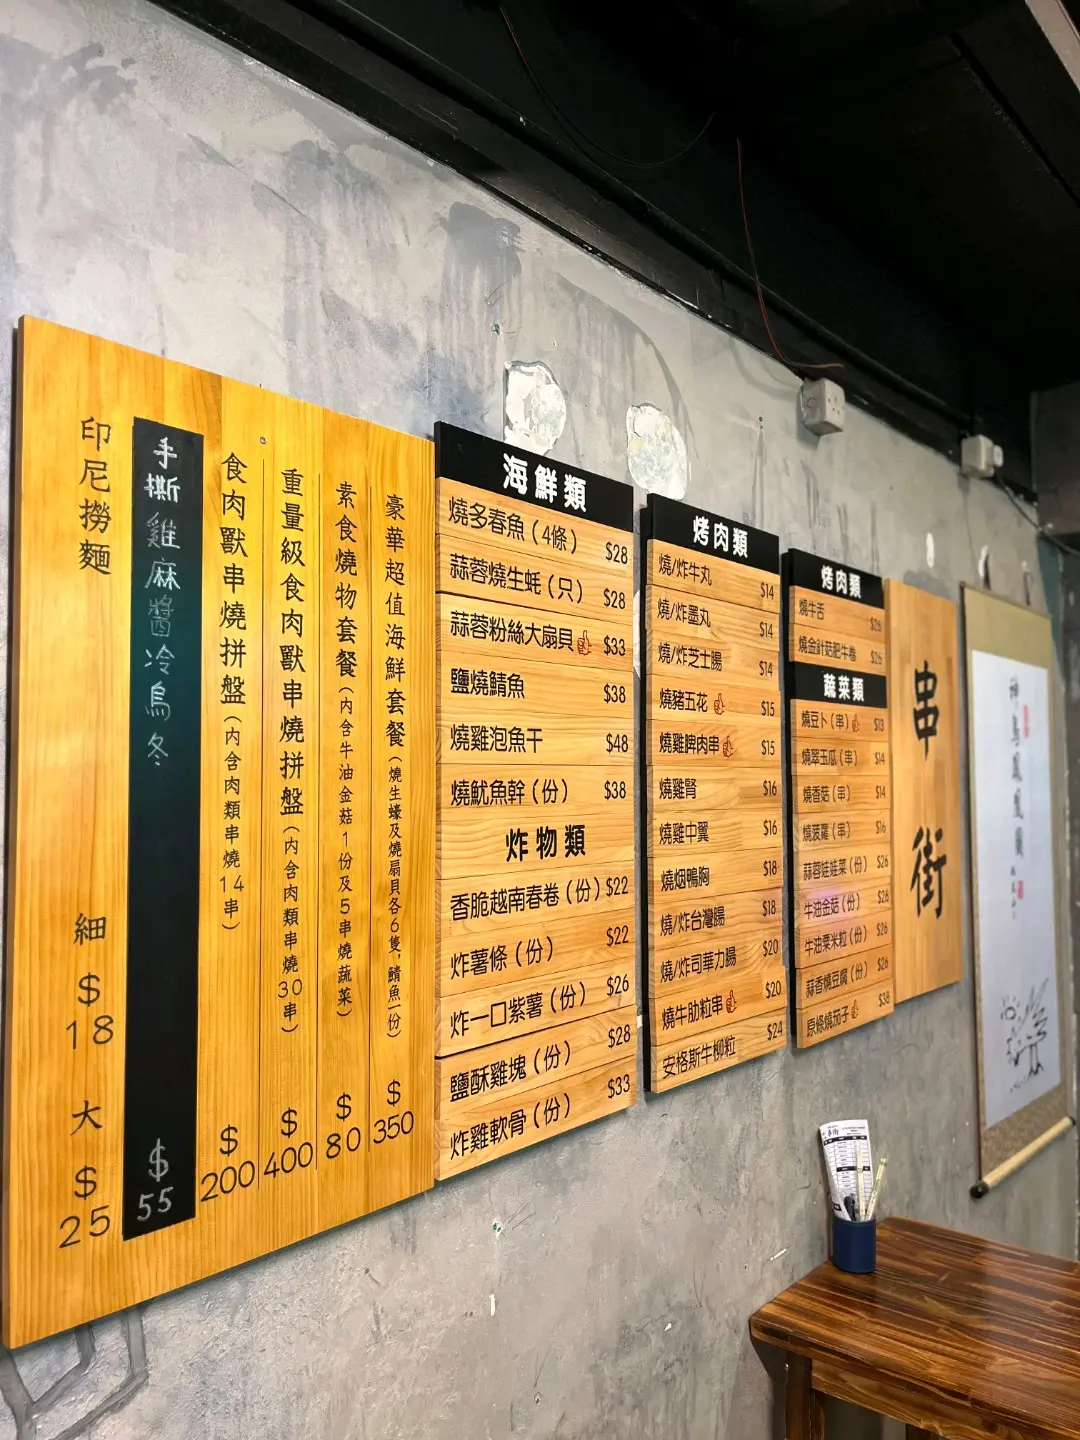 印尼撈麵 細 $18 大 $25
手撕雞麻醬冷烏冬 $55
食肉獸串燒拼盤（內含肉類串燒14串） $200
重量級食肉獸串燒拼盤（內含肉類串燒30串） $400
素食燒物套餐（內含牛油金菇1份及5串燒蔬菜） $80
豪華超值海鮮套餐（燒生蠔及燒扇貝各6隻，鯖魚一份） $350
海鮮類
燒多春魚（4條） $28
蒜蓉燒生蚝（只） $28
蒜蓉粉絲大扇貝 $33
鹽燒鯖魚 $38
燒雞泡魚干 $48
燒魷魚幹（份） $38
炸物類
香脆越南春卷（份） $22
炸薯條（份） $22
炸一口紫薯（份） $26
鹽酥雞塊（份） $28
炸雞軟骨（份） $33
烤肉類
燒/炸牛丸 $14
燒/炸墨丸 $14
燒/炸芝士腸 $14
燒豬五花 $15
燒雞脾肉串 $15
燒雞腎 $16
燒雞中翼 $16
燒烟鴨胸 $18
燒/炸台灣腸 $18
燒/炸司華力腸 $20
燒牛肋粒串 $20
安格斯牛柳粒 $24
烤肉類
燒牛舌 $26
燒金針菇肥牛卷 $26
蔬菜類
燒豆卜（串） $13
燒翠玉瓜（串） $14
燒香菇（串） $14
燒菠蘿（串） $16
蒜蓉娃娃菜（份） $26
牛油金菇（份） $26
牛油粟米粒（份） $26
蒜香燒豆腐（份） $26
原條燒茄子 $38
串街